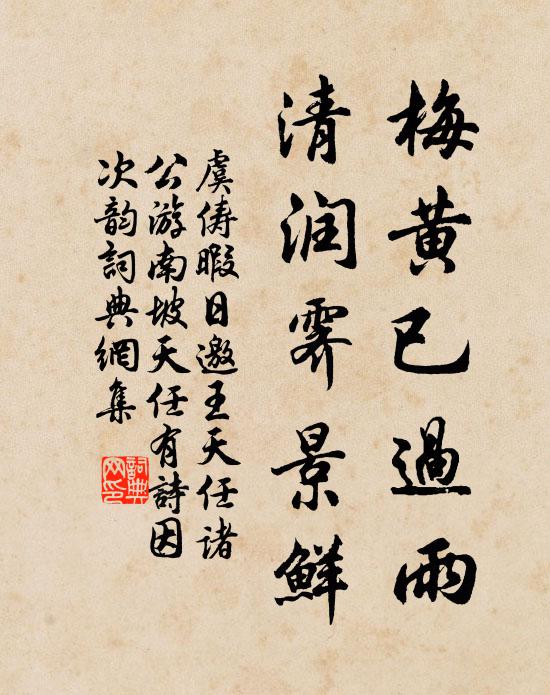 梅黄已過雨
清润霽景鮮
虞儔暇日邀王天任诸
公游南坡天任有詩因
次韵詞典網集
詞典
网印